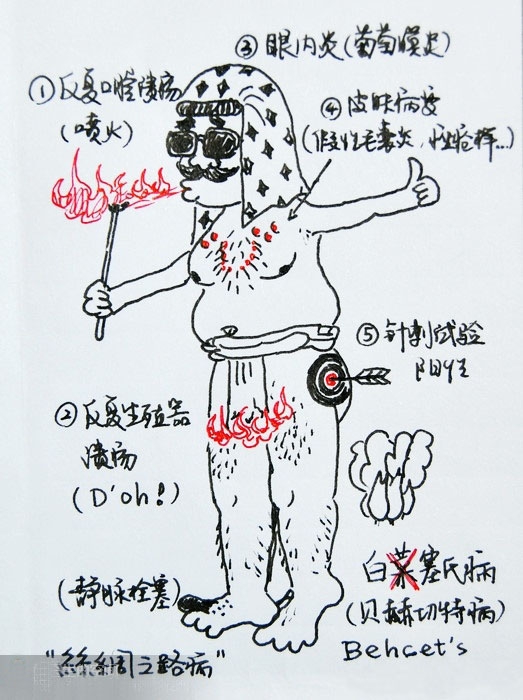 ③ 眼内炎(葡萄膜炎)
① 反复口腔溃疡
(喷火)
④ 皮肤病变
(假性毛囊炎，痤疮样…)
⑤ 针刺试验
阳性
② 反复生殖器
溃疡
(D'oh!)
白菜塞氏病
(静脉栓塞)
(贝赫切特病)
Behcet's
"丝绸之路病"